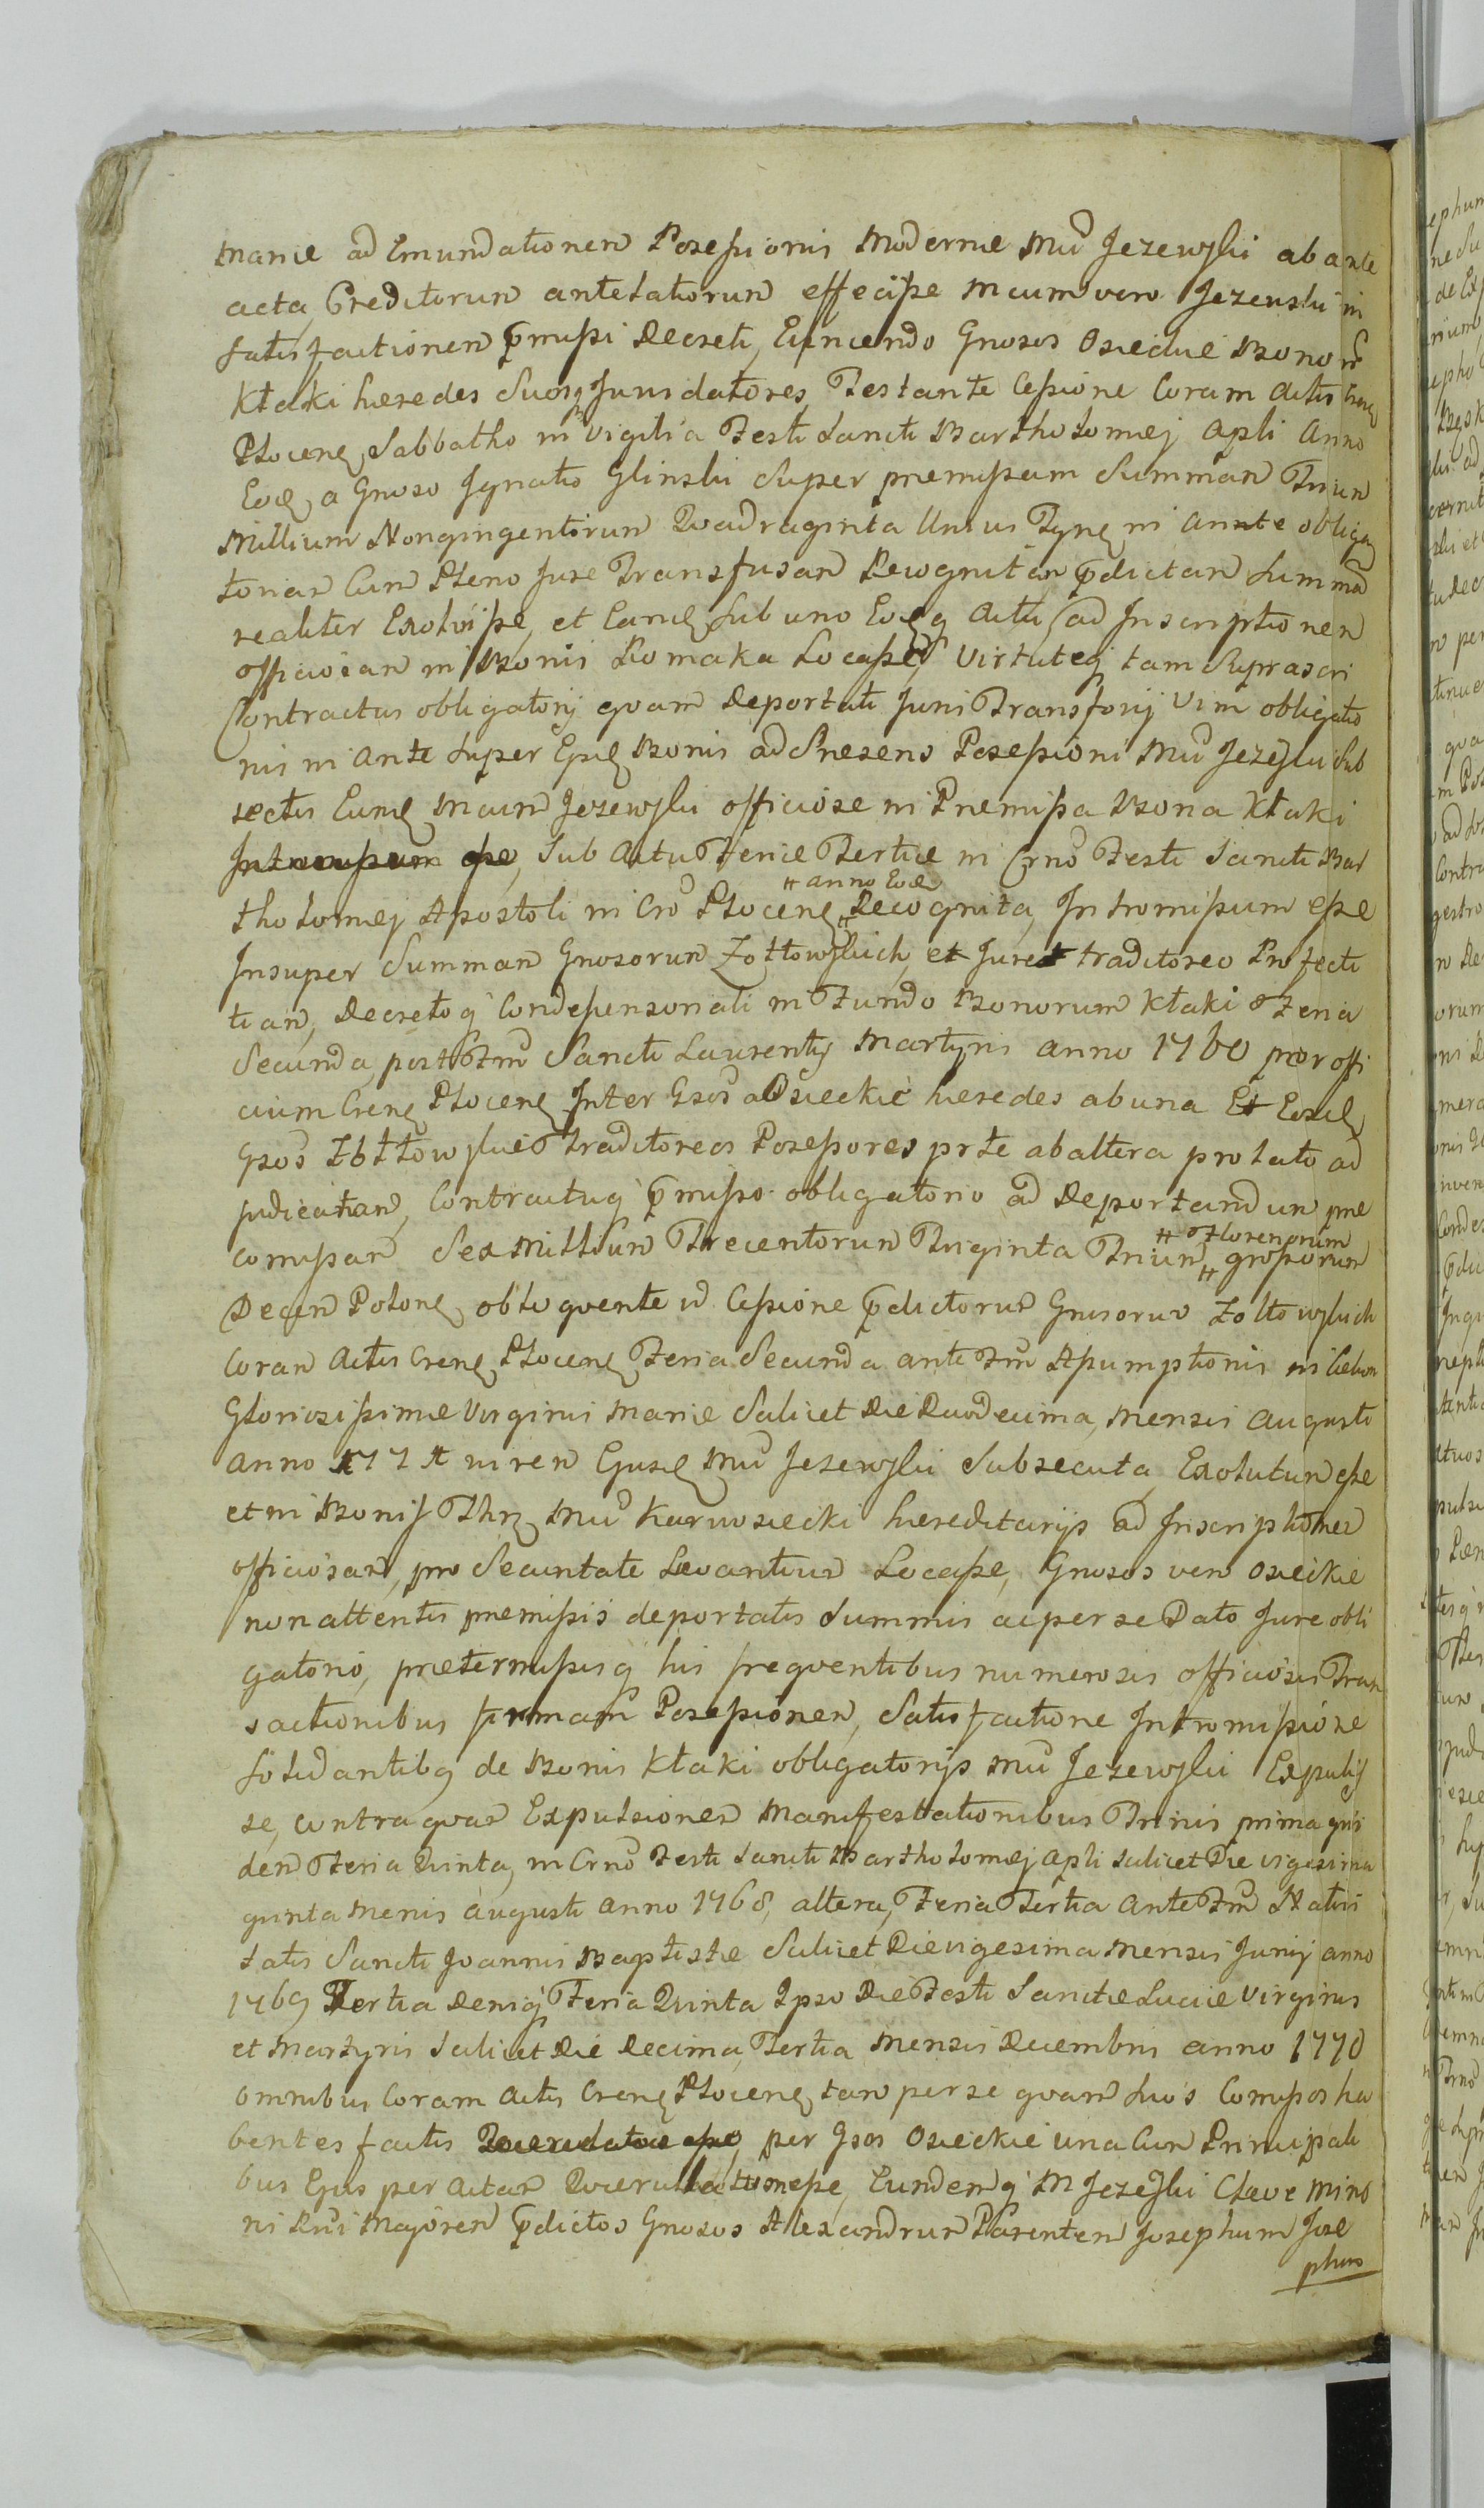 mariæ ad Emundationem Possessionis Modernæ Mci Jezewski ab ante
acta Creditorum antelatiorum effecisse Mcum vero Jezewski in
satisfactionem pmissi Decreti, Evincendo Gnosos Osieckie Bonorum
Kłaki hæredes Suosq Juris datores, Testante Cessione Coram Actis Cren
Plocen Sabbatho in Vigilia Festi Sancti Bartholomæj Apli Anno
Eod a Gnoso Ignatio Glinski Super præmissam Summam Trium
Millium Nongingentorum Quadraginta Unius Tyn in Ante obliga
toriam Cum Pleno Jure Transfusam Recognitam pdictam Summam
realiter Exolvisse, et Eand Sub uno Eodq Actu ad Inscriptionem
officiosam in Bonis Łomaka Locasse, Virtuteq tam Suprascri
Contractus obligatorij quam Deportati Juris Transfusij Vim obligatio
nis in Ante Super Ejsd Bonis ad Præsens Possessioni Mci Jezewski Sub
sectis Eund Mcum Jezewski officiose in Præmissa Bona Kłaki
Sub Actu Feriæ Tertiæ in Crno Festi Sancti Bar
tholomæj Apostoli in Cro Plocen # anno Eod # Recognita, Intromissum esse
Insuper Summam Gnosorum Zołtowskich, et Jure traditoreo Profecti
tiam, Decretoq Condescensoriali in Fundo Bonorum Kłaki Feria
Secunda post Fm Sancti Laurentij Martyris anno 1760 per offi
cium Cren Plocen Inter Gsos Osieckie hæredes ab una Et Eosd
Gsos Zołtowskie Traditoreos Possessores prte ab altera prolato ad
judicatam, Contractuq pmisso obligatorio ad Deportandum præ
comissam Sex Millium Trecentorum Triginta Trium # Florenorum # grossorum
Decem Polon, obloquente id Cessione pdictorum Gnosorum Zołtowskich
Coram Actis Cren Plocen Feria Secunda ante Fm Assumptionis in Cœlum
Gloriosissimæ Virginis Mariæ Scilicet Die Duodecima, Mensis Augusti
anno 1771 in rem Ejusd Mci Jezewski Subsecuta, Exolutum esse
et in Bonis Thr Mci Karwosiecki hæreditarijs ad Inscriptionem
officiosam, pro Securitate Levantium Locasse, Gnosos vero Osieckie
non attentis præmissis deportatis Summis ac per se Dato Jure obli
gatorio, præternissisq his frequentibus numerosis officiosis Tran
sactionibus firmam Possessionem, Satisfactione Intromissione
Solidantibq de Bonis Kłaki obligatorijs Mci Jezewski Expulis
se, contra quas Expulsiones Manifestationibus Trinis prima qui
dem Feria Quinta, in Crno Festi Sancti Bartholomæj Apli Scilicet Die vigesima
quinta Menis Augusti Anno 1768, altera, Feria Tertia Ante Fm Nativi
tatis Sancti Joannis Baptistæ Scilicet Die vigesima Mensis Junij anno
1769 Tertia Deniq Feria Quinta Ipso Die Festi Sanctæ Luciæ Virginis
et Martyris Scilicet Die Decima Tertia Mensis Decembris anno 1770
omnibus Coram Actis Cren Plocen tam per se quam Suos Compos ha
bentes factis per Gsos Osieckie una Cum Principali
bus Ejus per Actam Querulatum esse, Eundemq M Jezewski Clave Mino
ri Rni Majorem pdictos Gnosos Alexandrum Parentem Josephum Jose
phum